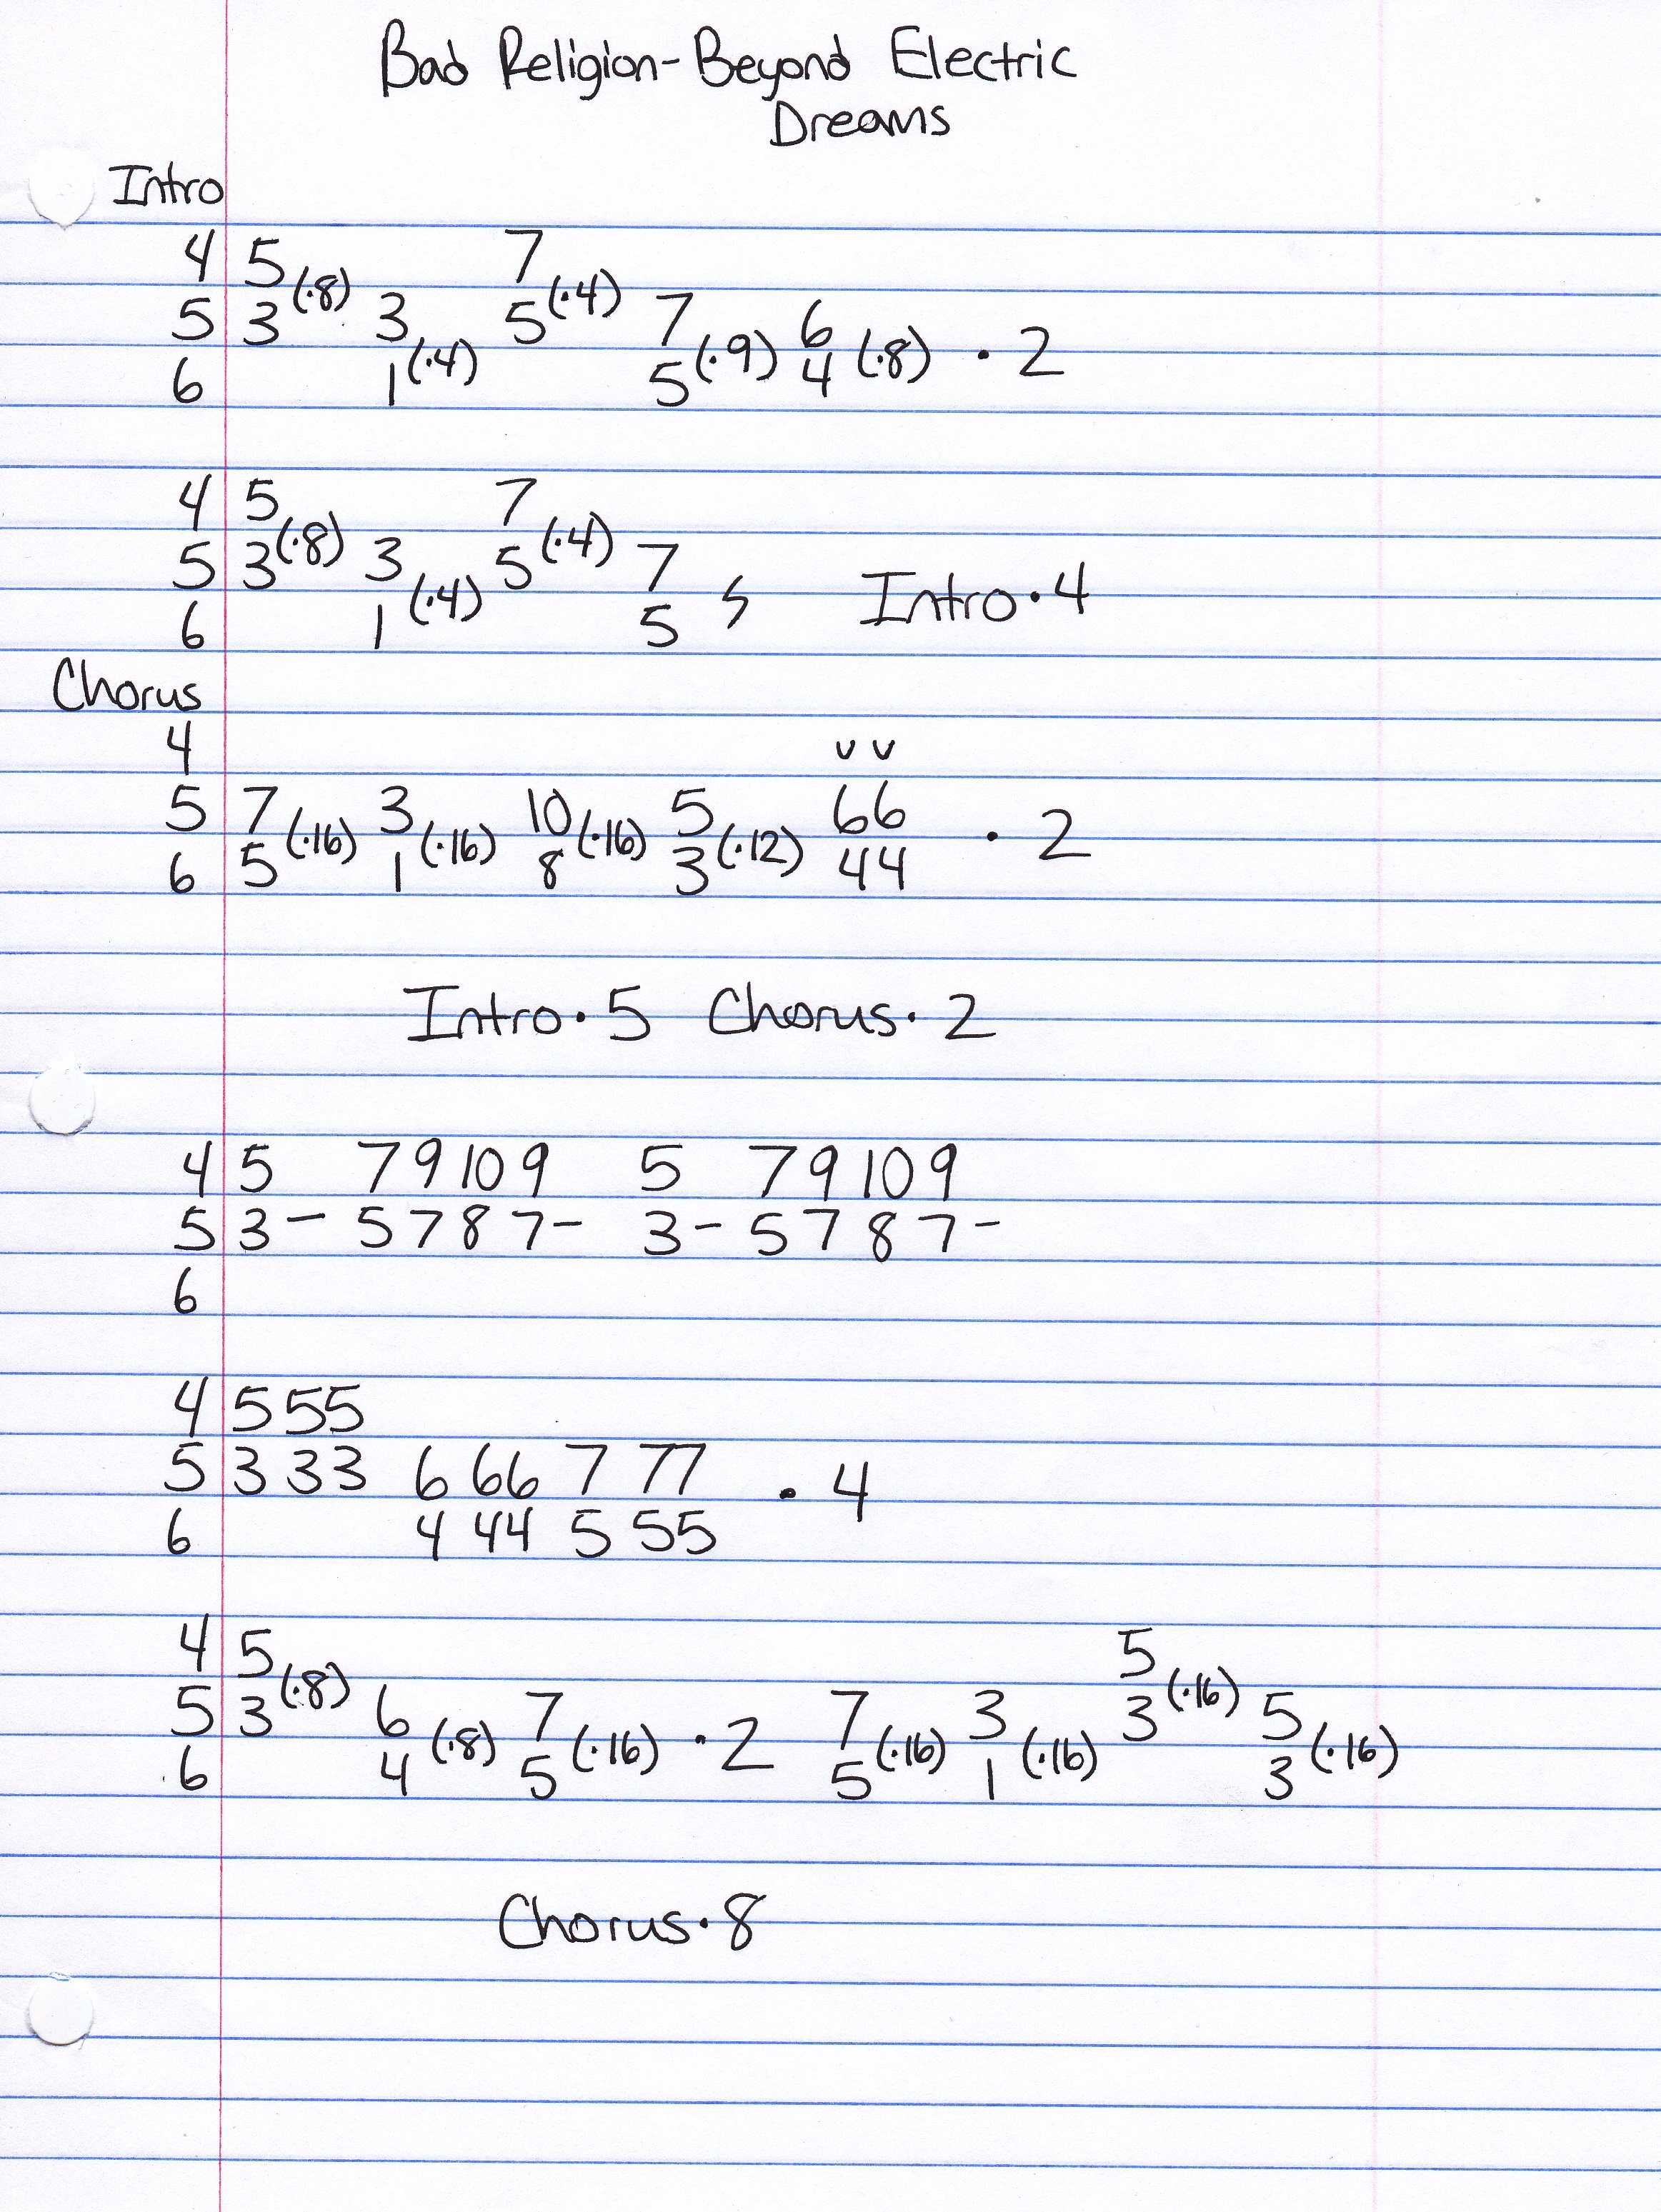 Bad Religion - Beyond Electric
Dreams
Intro
4 5 7
5 3 (·8) 3 5 (·4) 7 6
6 1 (·4) 5 (·9) 4 (·8) · 2
4 5 7
5 3 (·8) 3 5 (·4) 7
6 1 (·4) 5 Intro · 4
Chorus
4 v v
5 7 3 10 5 66
6 5 (·16) 1 (·16) 8 (·16) 3 (·12) 44 · 2
Intro · 5 Chorus · 2
4 5 7 9 10 9 5 7 9 10 9
5 3 – 5 7 8 7 – 3 – 5 7 8 7 –
6
4 5 55
5 3 33 6 66 7 77
6 4 44 5 55 · 4
4 5 5
5 3 (·8) 6 7 7 3 3 (·16) 5
6 4 (·8) 5 (·16) · 2 5 (·16) 1 (·16) 3 (·16)
Chorus · 8